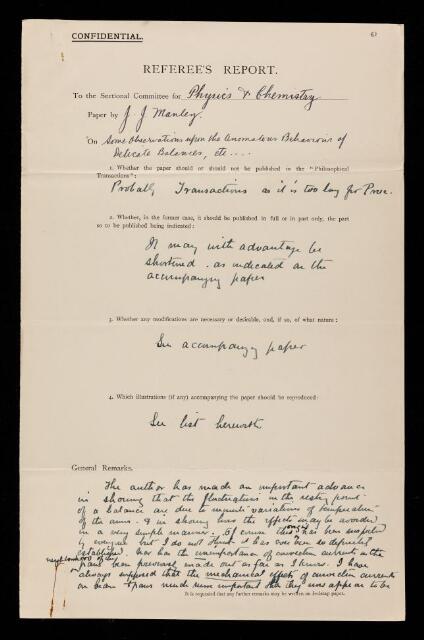 CONFIDENTIAL.
61
REFEREE'S REPORT.
To the Sectional Committee for Physics & Chemistry
Paper by J. J. Manley.
On Some Observations upon the Anomalous Behaviour of
Delicate Balances, etc....
1. Whether the paper should or should not be published in the "Philosophical
Transactions":
Probably Transactions as it is too long for Proc.
2. Whether, in the former case, it should be published in full or in part only, the part
so to be published being indicated:
It may with advantage be
shortened. as indicated on the
accompanying paper
3. Whether any modifications are necessary or desirable, and, if so, of what nature:
See accompanying paper
4. Which illustrations (if any) accompanying the paper should be reproduced:
See list herewith
General Remarks.
The author has made an important advance
in showing that the fluctuations in the resting point
of a balance are due to minute variations of temperature
of the arms. & in showing how the effects may be avoided
in a very simple manner. Of course this has been suspected
by everyone but I do not think it has ever been so definitely
established. Nor has the unimportance of convection currents in the
pans been previously made out as far as I know. I have
always supposed that the mechanical effects of convection currents
on beam & pans much more important than they now appear to be
It is requested that any further remarks may be written on foolscap paper.